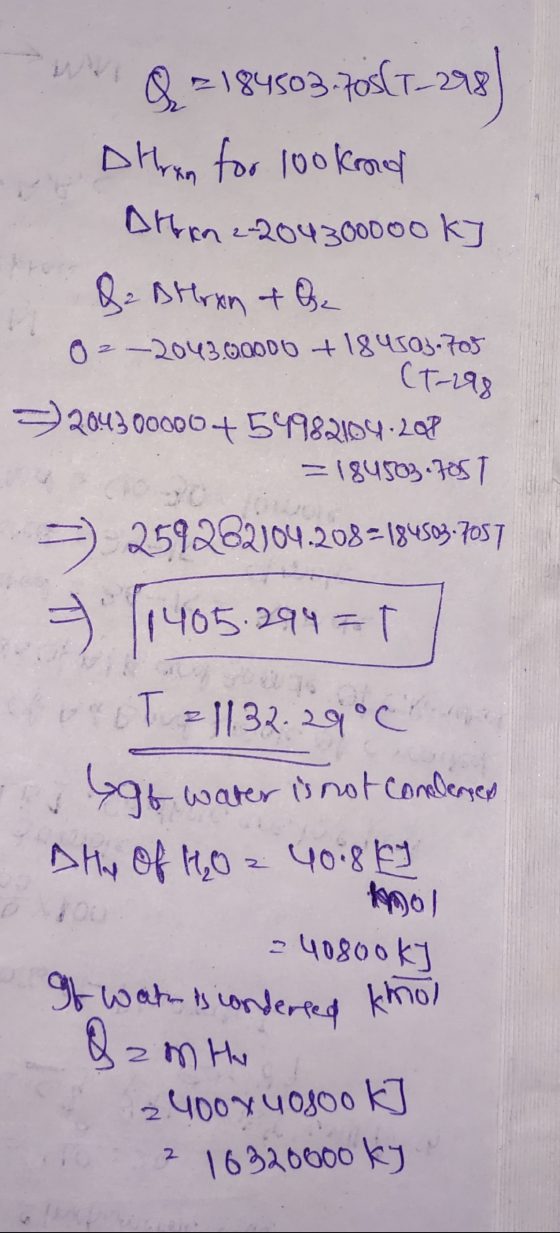 Q₂ = 184503.705(T-298)
ΔHrxn for 100 kmol
ΔHrxn = -204300000 KJ
Q = ΔHrxn + Q₂
0 = -204300000 + 184503.705
(T-298
⇒ 204300000 + 54982104.208
= 184503.705T
⇒ 259282104.208 = 184503.705T
⇒ 1405.294 = T
T = 1132.29°C
↳ If water is not condensed
ΔHv Of H₂O = 40.8 KJ
mol
= 40800 KJ
If water is condensed kmol
Q = mHv
= 400 × 40800 KJ
= 16320000 KJ